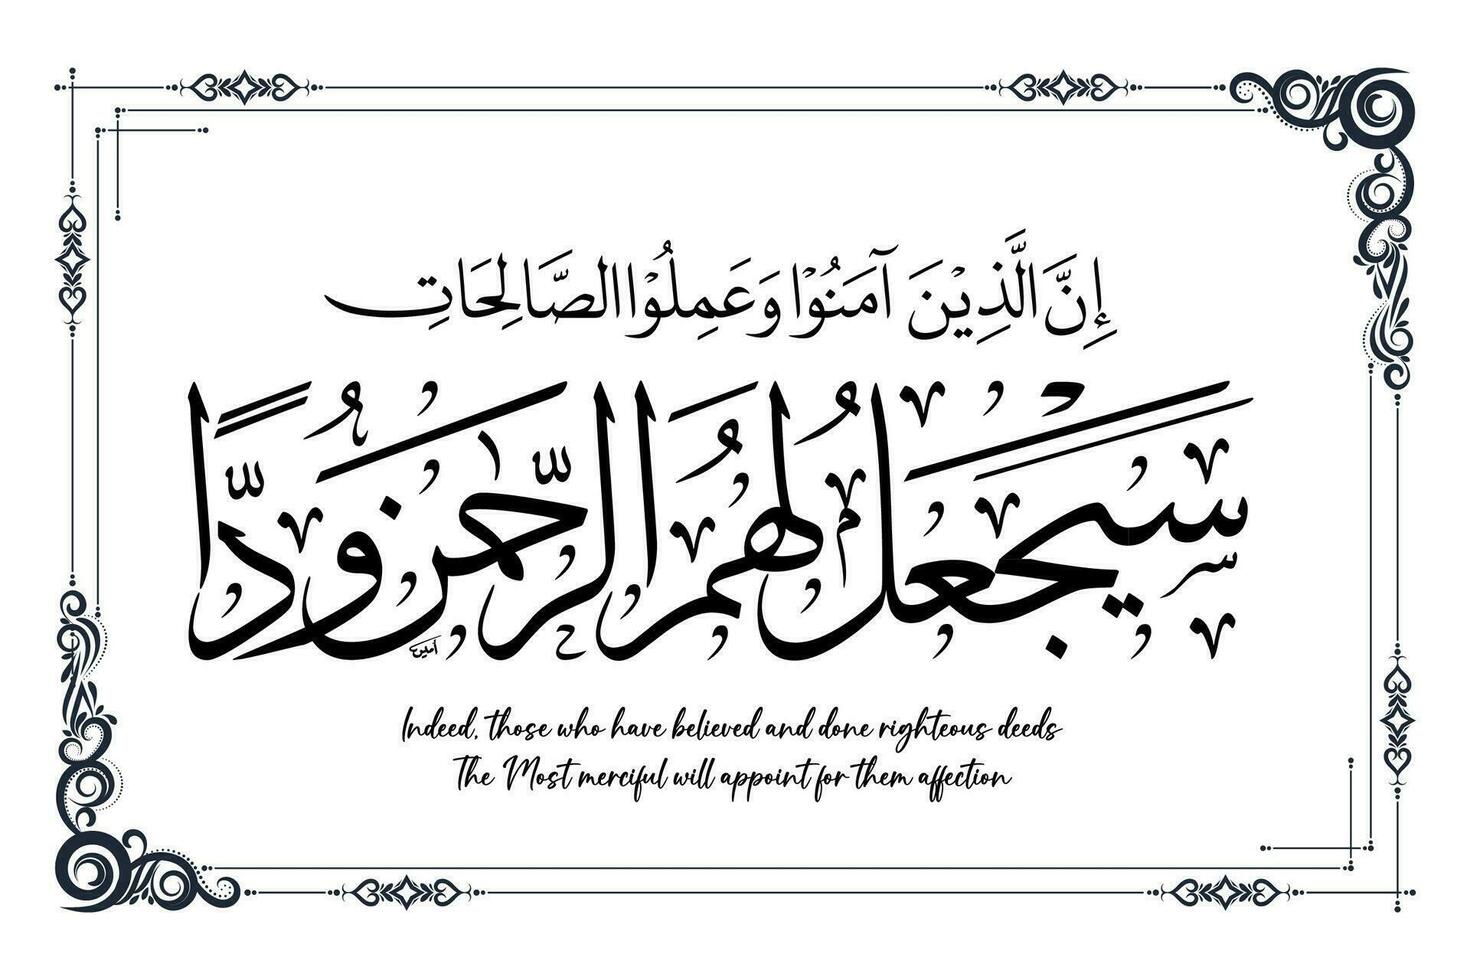 إِنَّ الَّذِيْنَ آمَنُوْا وَعَمِلُوْا الصَّالِحَاتِ
سَيَجْعَلُ لَهُمُ الرَّحْمٰنُ وُدًّا
أمين
Indeed, those who have believed and done righteous deeds
The Most merciful will appoint for them affection